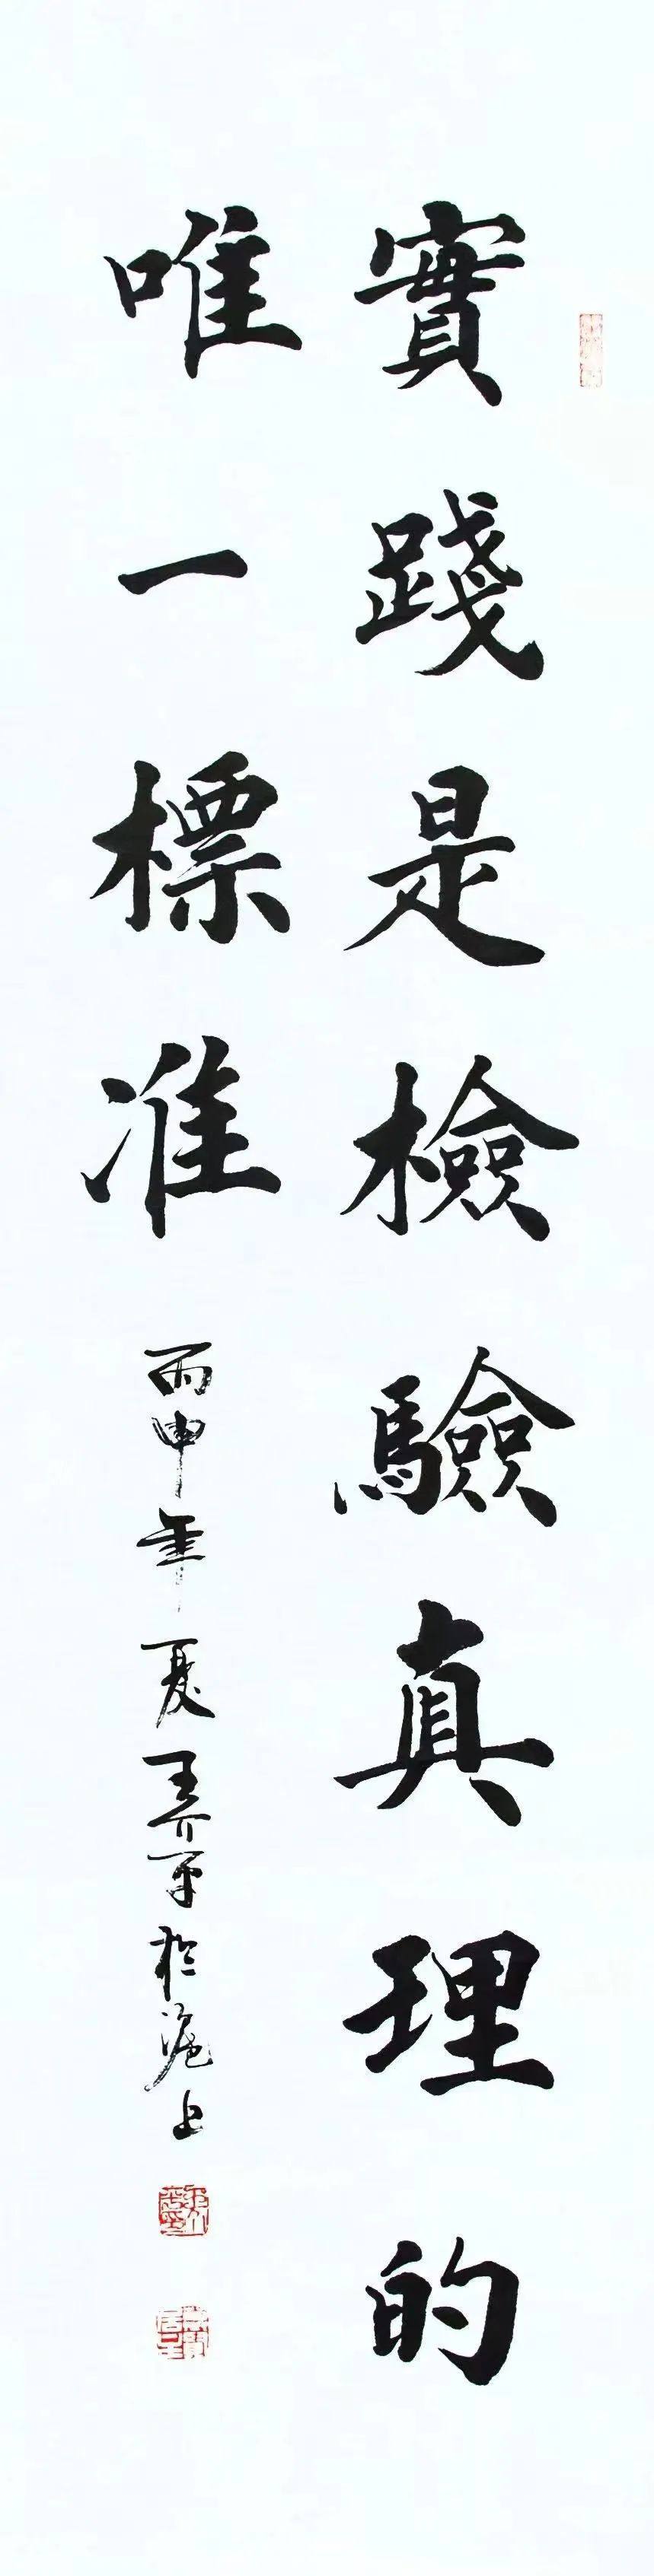 實踐是檢驗真理的
唯一標准
丙申年夏王介平於滬上